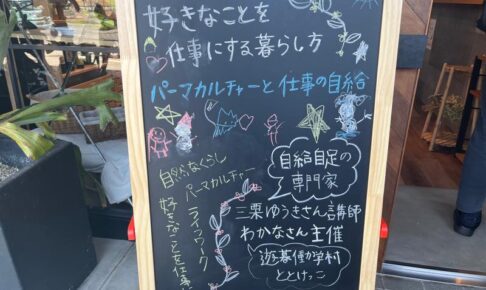 好きなことを
仕事にする暮らし方
パーマカルチャーと仕事の自給
自給自足の
専門家
三栗ゆうきさん講師
わかなさん主催
遊暮働学村
ととけっこ
自然なくらし
パーマカルチャー
ライフワーク
好きなことを仕事に